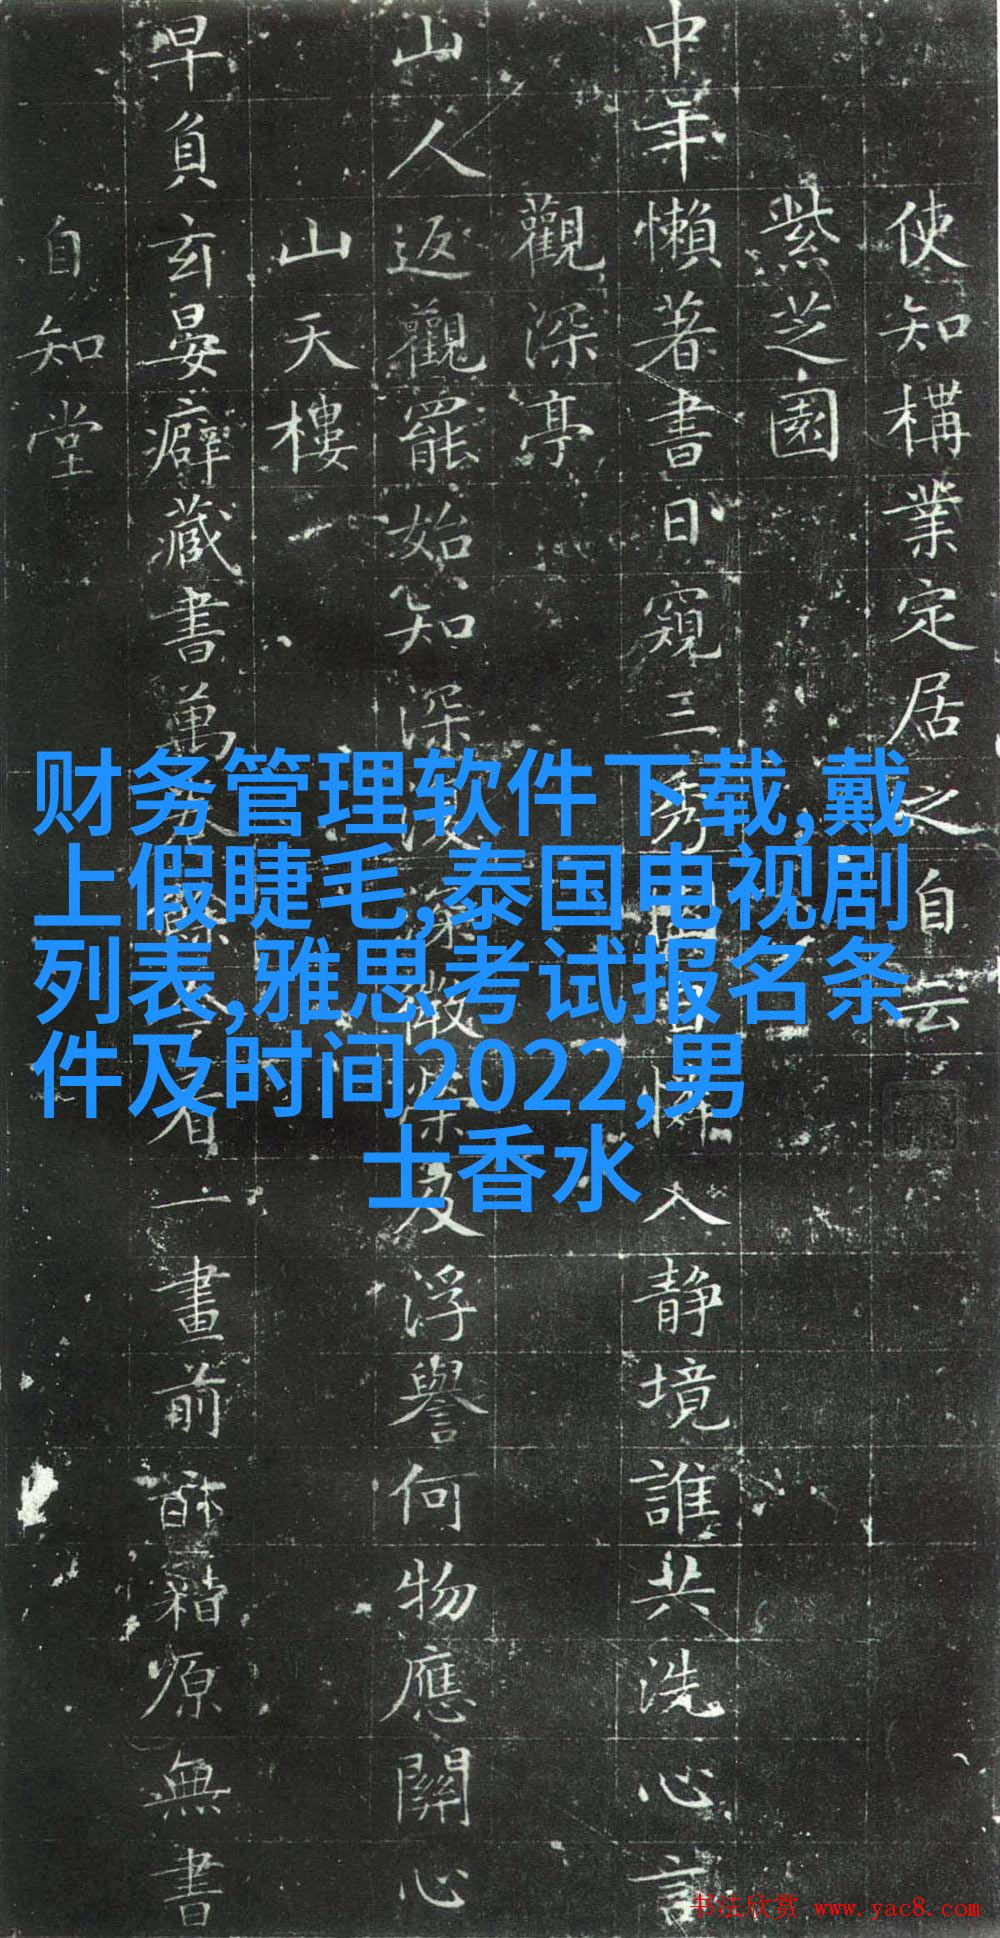 使知構業定居之自云
紫芝園
中年懶著書日窺三秀入静境誰共洗心言
觀深亭
山人返觀罷始知深深及浮譽何物應關心
山天樓
早負玄晏癖藏書萬看一畫前籍原無書
自知堂
财务管理软件下载,戴
上假睫毛,泰国电视剧
列表,雅思考试报名条
件及时间2022,男
士香水
书法欣赏 www.yac8.com